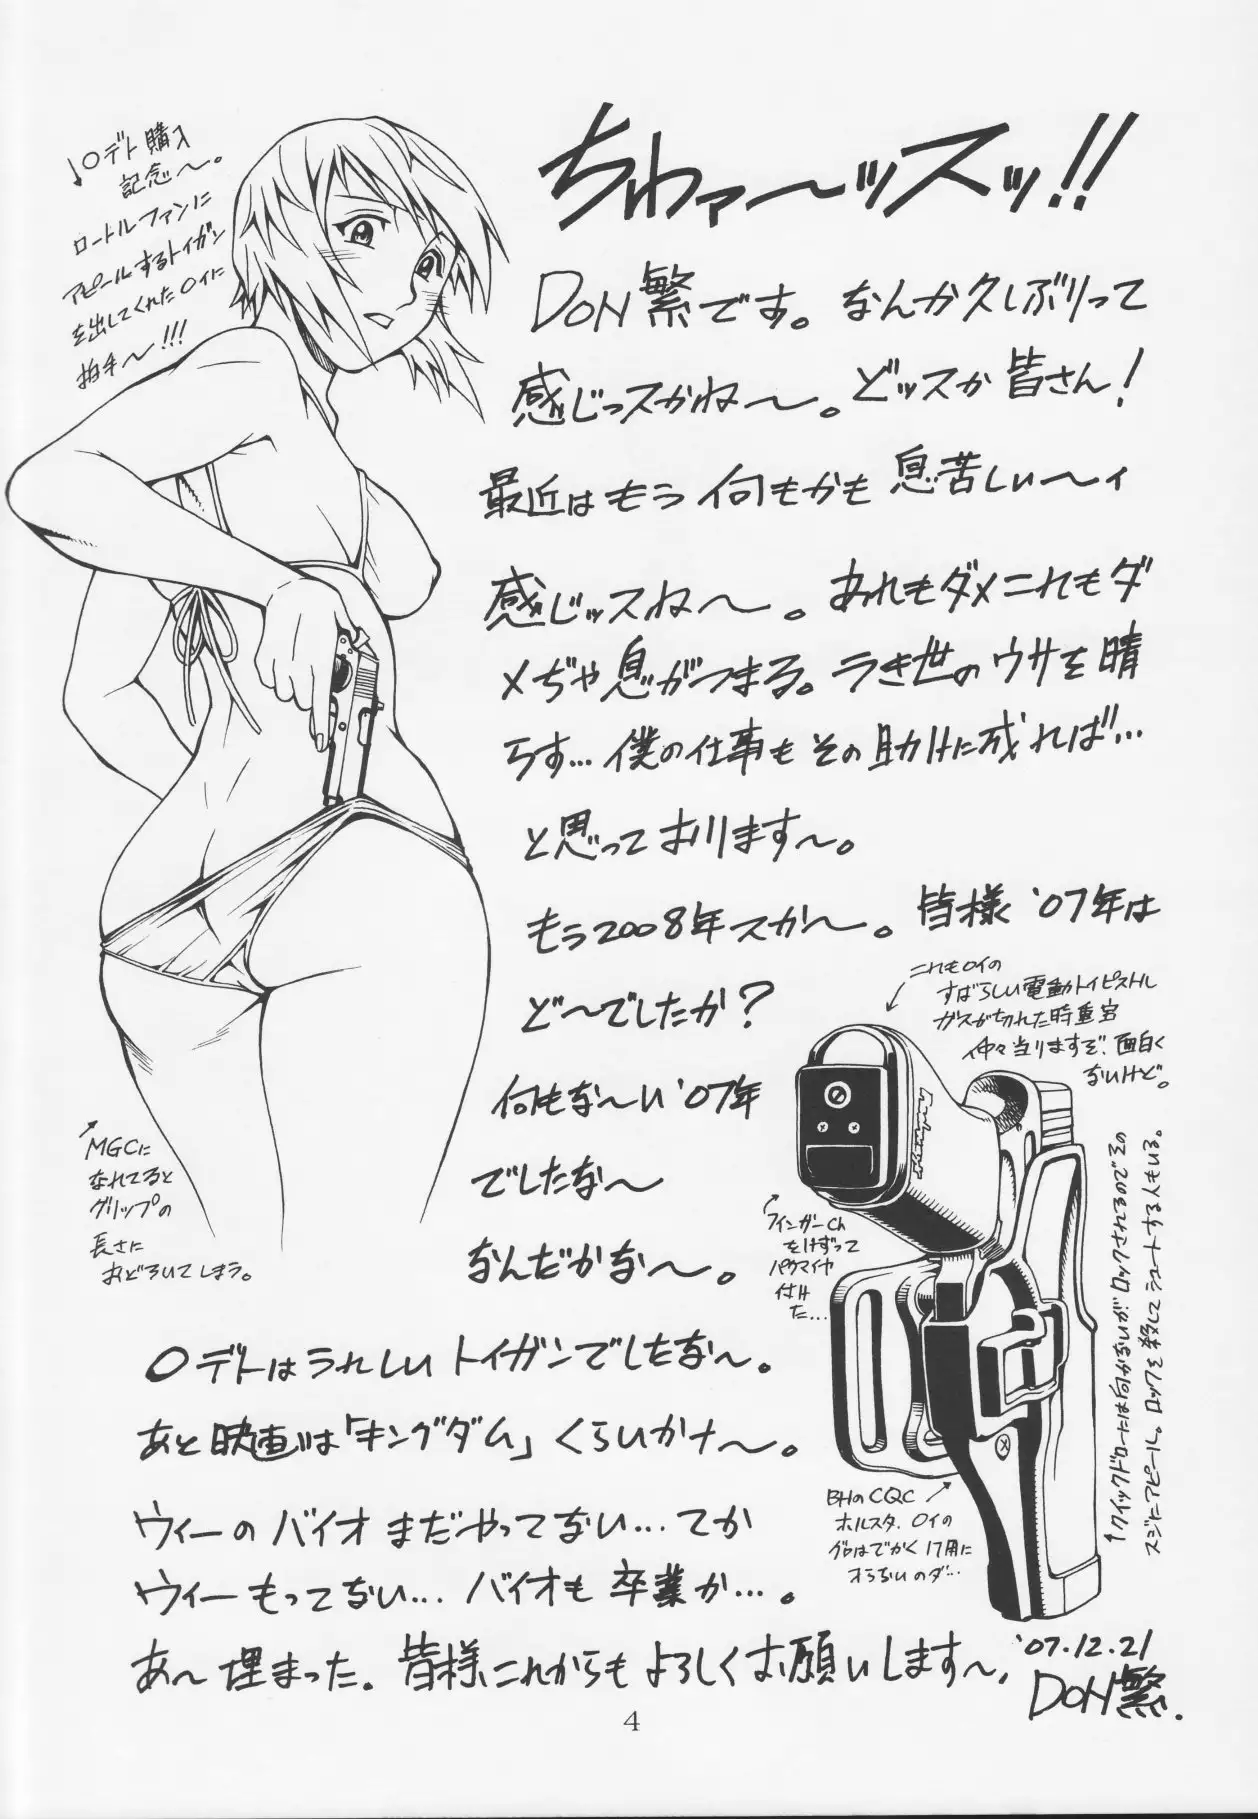 ちわァ〜ッスッ!!
DON繁です。なんか久しぶりって
感じっスかね〜。どッスか皆さん!
最近はもう何もかも息苦しい〜ィ
感じッスね〜。あれもダメこれもダ
メぢゃ息がつまる。うき世のウサを晴
らす…僕の仕事もその助けに成れば…
と思っております〜。
もう2008年スか〜。皆様'07年は
ど〜でしたか?
何もな〜い'07年
でしたな〜
なんだかな〜。
〇デトはうれしいトイガンでしたな〜。
あと映画は「キングダム」くらいかナ〜。
ウィーのバイオまだやってない…てか
ウィーもってない…バイオも卒業か…。
あ〜埋まった。皆様、これからもよろしくお願いします〜、
'07.12.21
DON繁.
↓〇デト購入
記念〜。
ロートルファンに
アピールするトイガン
を出してくれた〇イに
拍手〜!!!
MGCに
なれてると
グリップの
長さに
おどろいてしまう。
これも〇イの
すばらしい電動トイピストル
ガスが切れた時重宝
仲々当りますぞ、面白く
ないけど。
フィンガーch
をけずって
パクマイヤ
付けた…
BHのCQC
ホルスタ、〇イの
グロはでかく17用に
オらないのダ…
↑クイックドローには向かないが、ロックされるのでその
スジにアピール。ロックを殺してシュートする人もいる。
4